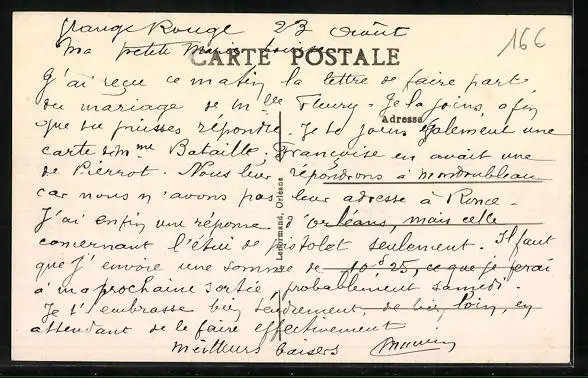 Grange Rouge 23 Août
166
Ma petite Marie Louise
CARTE POSTALE
J'ai reçu ce matin la lettre de faire part
du mariage de Mlle Fleury. Je la joins, afin
Adresse
que tu puisses répondre. Je te joins également une
carte de Mme Bataille, Françoise en avait une
de Pierrot. Nous leur répondrons à Mondoubleau
car nous n'avons pas leur adresse à Ronce.
J'ai enfin une réponse d'Orléans, mais celle
concernant l'étui de pistolet seulement. Il faut
que j'envoie une somme de 10 25, ce que je ferai
à ma prochaine sortie, probablement samedi.
Je t'embrasse bien tendrement, de bien loin, en
attendant de le faire effectivement
Meilleurs baisers
Lenormand, Orléans